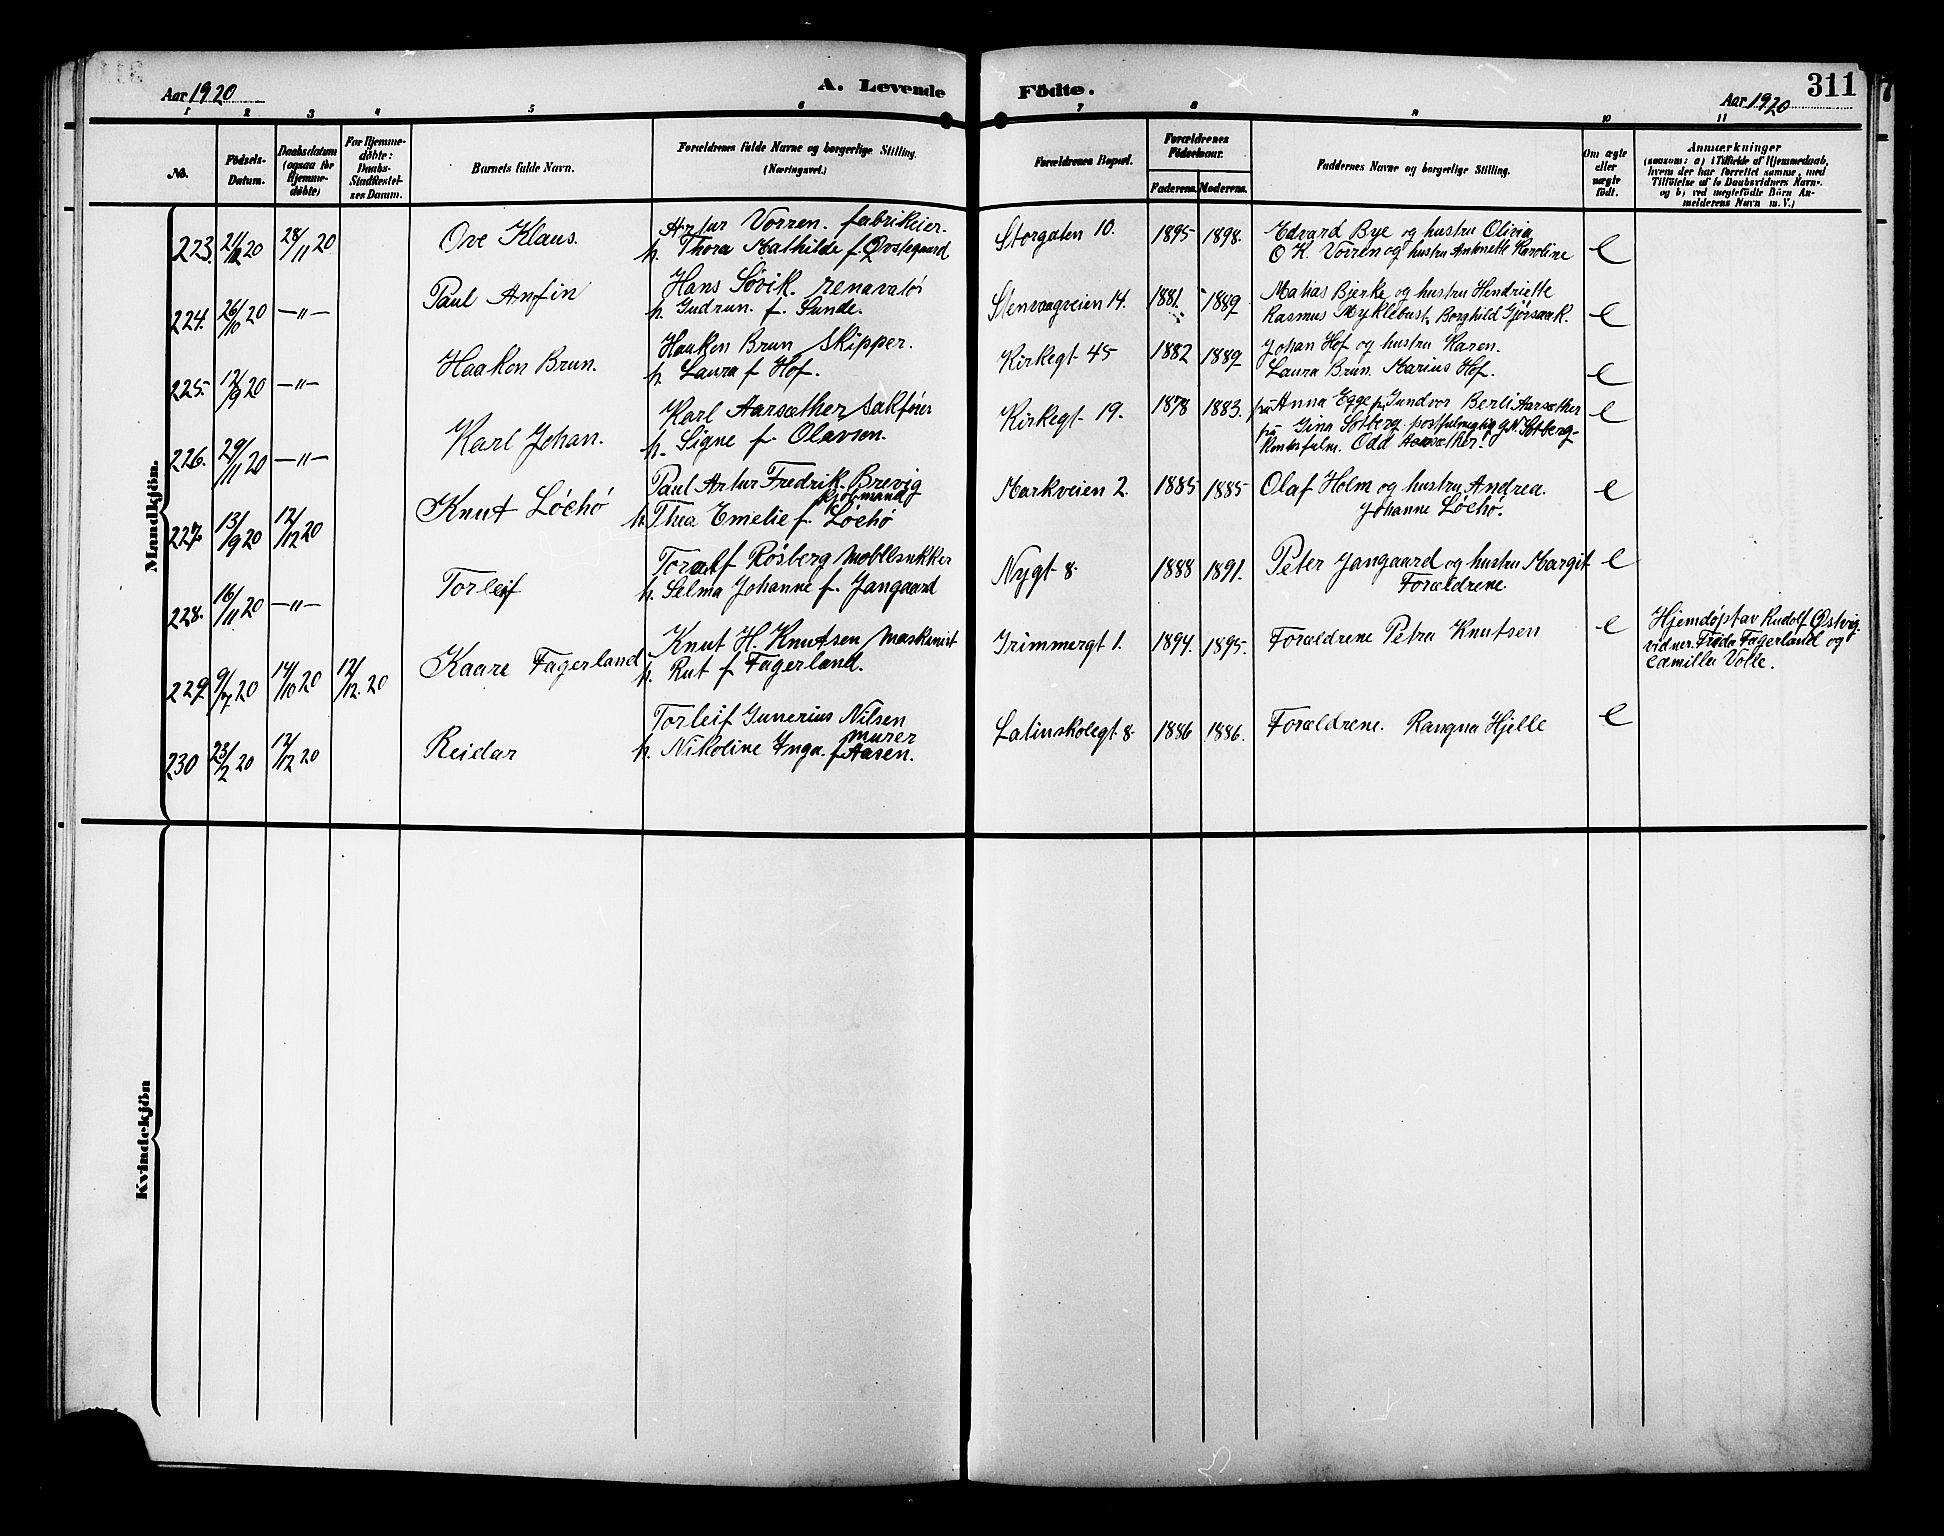 Aar 1920
A. Levende
Födte.
311
Aar 1920
1 2 3 4 5 6 7 8 9 10 11
No.
Födsels-
Datum.
Daabsdatum
(ogsaa for
Hjemme-
döbte)
For Hjemme-
döbte:
Daabs-
Stadfæstel-
ses Datum.
Barnets fulde Navn.
Forældrenes fulde Navne og borgerlige Stilling.
(Næringsvei.)
Forældrenes Bopæl.
Forældrenes
Födselsaar.
Faderens. Moderens.
Faddernes Navne og borgerlige Stilling.
Om ægte
eller
uægte
födt.
Anmærkninger
(saasom: a) i Tilfælde af Hjemmedaab,
hvem der har forrettet samme, med
Tilföielse af to Daabsvidners Navn-
og b) ved uægtefödte Börn An-
melderens Navn m. V.)
Mandkjön.
223. 28/11 20 Ove Klaus.
Artur Vorren. fabrikeier.
h. Thora Mathilde f. Østegaard
Storgaten 10. 1895 1898.
Edvard Bye og hustru Olivia
O K. Vorren og hustru Antonette Karoline
e
224. 26/10 20 —"— Paul Anfin
Hans Søvik. renovatør
h. Gudrun. f. Sunde.
Stenvaagveien 14. 1881. 1889
Matias Bjerke og hustru Hendriette
Rasmus Myklebust, Borghild
e
225. 12/9 20 —"— Haakon Brun.
Haakon Brun Skipper.
h. Laura f Hof.
Kirkegt 45 1882 1889
Johan Hof og hustru Karen.
Laura Brun. Marius Hof.
e
226. 29/11 20 —"— Karl Johan.
Karl Aarsæther sakfører
h. Signe f. Olavsen.
Kirkegt 19. 1878 1883.
fru Anna Egge fr. Gundvor Berli Aarsæther
fru Gina Søtberg. postfulmegtig N. Søtberg
Odd Aarsæther.
e
227. 13/9 20 12/12 20 Knut Løchö
Paul Artur Fredrik Brevig
kjøbmand
h. Thea Emelie f. Løchö
Markveien 2. 1885 1885
Olaf Holm og hustru Andrea.
Johanne Løchö.
e
228. 16/11 20 —"— Torleif
Toralf Røsberg
h. Selma Johanne f. Jangaard
Nygt 8. 1888 1891.
Peter Jangaard og hustru Margit
Forældrene.
e
229. 9/7 20 14/10 20 12/12. 20 Kaare Fagerland
Knut H. Knutsen Maskinist
h. Rut f Fagerland.
Grimmergt 1. 1894. 1895.
Forældrene Petra Knutsen
e
Hjemdøpt av Rudolf Østvig
vidner. Frøda Fagerland og
Camilla Volle.
230 23/2 20 12/12 20 Reidar
Torleif Gunerius Nilsen
murer
h. Nikoline Inga. f Aasen.
Latinskolegt 8. 1886 1886.
Forældrene. Rangna Hjelle
e
Kvindekjön